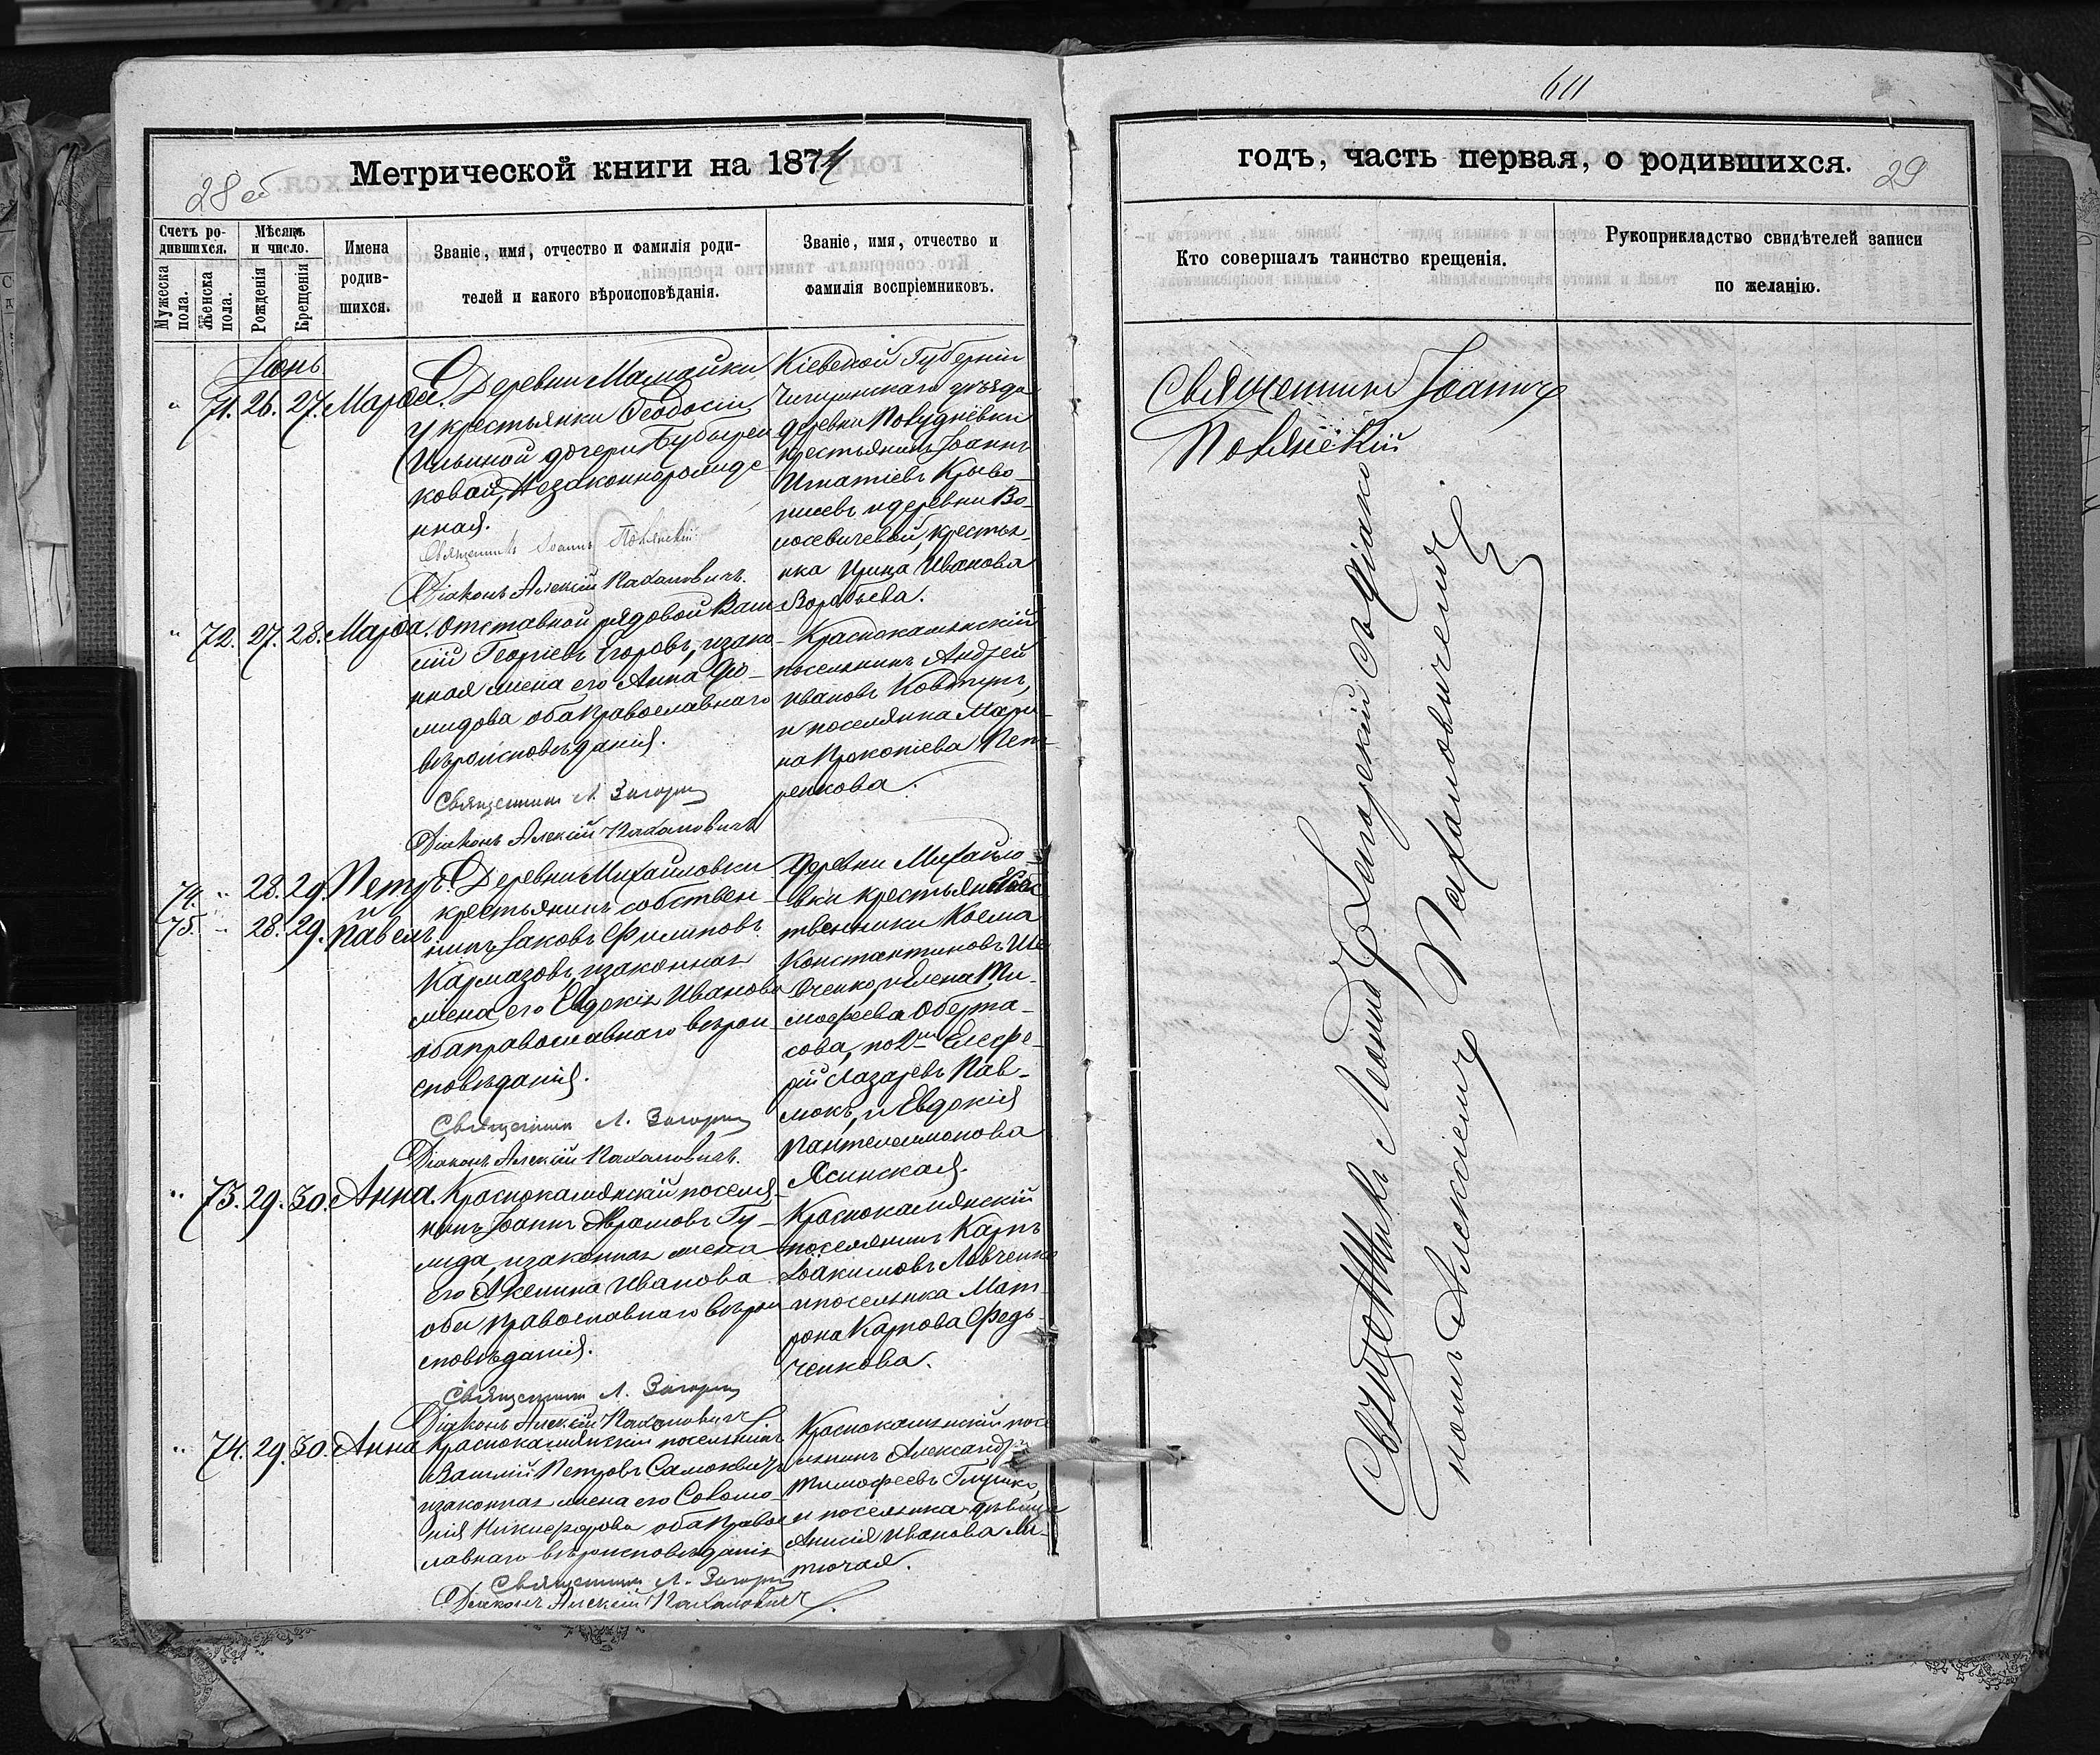 28 об
Метрической книги на 1874
Счетъ ро-
дившихся.
Мужеска пола.
Женска пола.
Мѣсяцъ
и число.
Рожденія
Крещенія
Имена
родив-
шихся.
Званіе, имя, отчество и фамилія роди-
телей и какого вѣроисповѣданія.
Званіе, имя, отчество и
фамилія воспріемниковъ.
Іюнь
71. 26. 27. Марѳа.
Деревни Мамайки
у крестьянки Ѳеодосіи
Ильиной дочери
ковай, Незаконнорожде
нная.
Священникъ Іоаннъ
Діаконъ Алексій Пахаловичъ.
Кіевской Губерніи
Чигиринскаго уѣзда
деревни
крестьянинъ Іоаннъ
Игнатіевъ Криво
и деревни Во-
лосевичевой, крестьян-
ка Ирина Иванова
Воробьева.
72. 27. 28. Марѳа.
Отставной рядовой Васи
лій Георгіевъ Егоровъ, и зако
нная жена его Анна Де-
мидова оба православнаго
вѣроисповѣданія.
Священникъ Л. Загор
Діаконъ Алексій Пахаловичъ
Краснокамянскій
поселянинъ Андрей
Ивановъ Ковтунъ,
и поселянка Мари-
на Прокопіева Пет-
ренкова.
74. 28. 29. Петръ
и
75. 28. 29. Павелъ.
Деревни Михайловки
крестьянинъ собствен-
никъ Іаковъ Филиповъ
Кармазовъ, и законная
жена его Евдокія Иванова
оба православнаго вѣрои
сповѣданія.
Священникъ Л. Загор
Діаконъ Алексій Пахаловичъ.
Деревни Михайло-
вки крестьяне собс
твенники Косма
Константиновъ Ше
вченко, и Елена Ти-
моѳеева Оберта-
сова, по 2мъ Елефе-
рій Лазаревъ Пав-
люкъ, и Евдокія
Пантелеимонова
Ясинская.
73. 29. 30. Анна.
Краснокамянскій поселя
нинъ Іоаннъ Аврамовъ Гу-
жда, и законная жена
его Акелина Иванова
оба православнаго вѣрои
сповѣданія.
Священникъ Л. Загор
Діаконъ Алексій Пахаловичъ.
Краснокамянскій
поселянинъ Карпъ
Іоакимовъ Левченко
и поселянка Мат-
рона Карпова Федь
ченкова.
74. 29. 30. Анна
Краснокамянскій поселянинъ
Василій Петровъ
и законная жена его Соломо-
нія Никифорова оба правос
лавнаго вѣроисповѣданія
Священникъ Л. Загор
Діаконъ Алексій Пахаловичъ.
Краснокамянскій посе
лянинъ Александръ
Тимофеевъ Глушко,
и поселянка дѣвица
Анисія Иванова Ли-
тючая.
611
годъ, часть первая, о родившихся.
29
Кто совершалъ таинство крещенія.
Рукоприкладство свидѣтелей записи
по желанію.
Священникъ Іоаннъ
Священникъ Леонидъ Загорскій съ Діако
номъ Алексіемъ Пахаловичемъ.